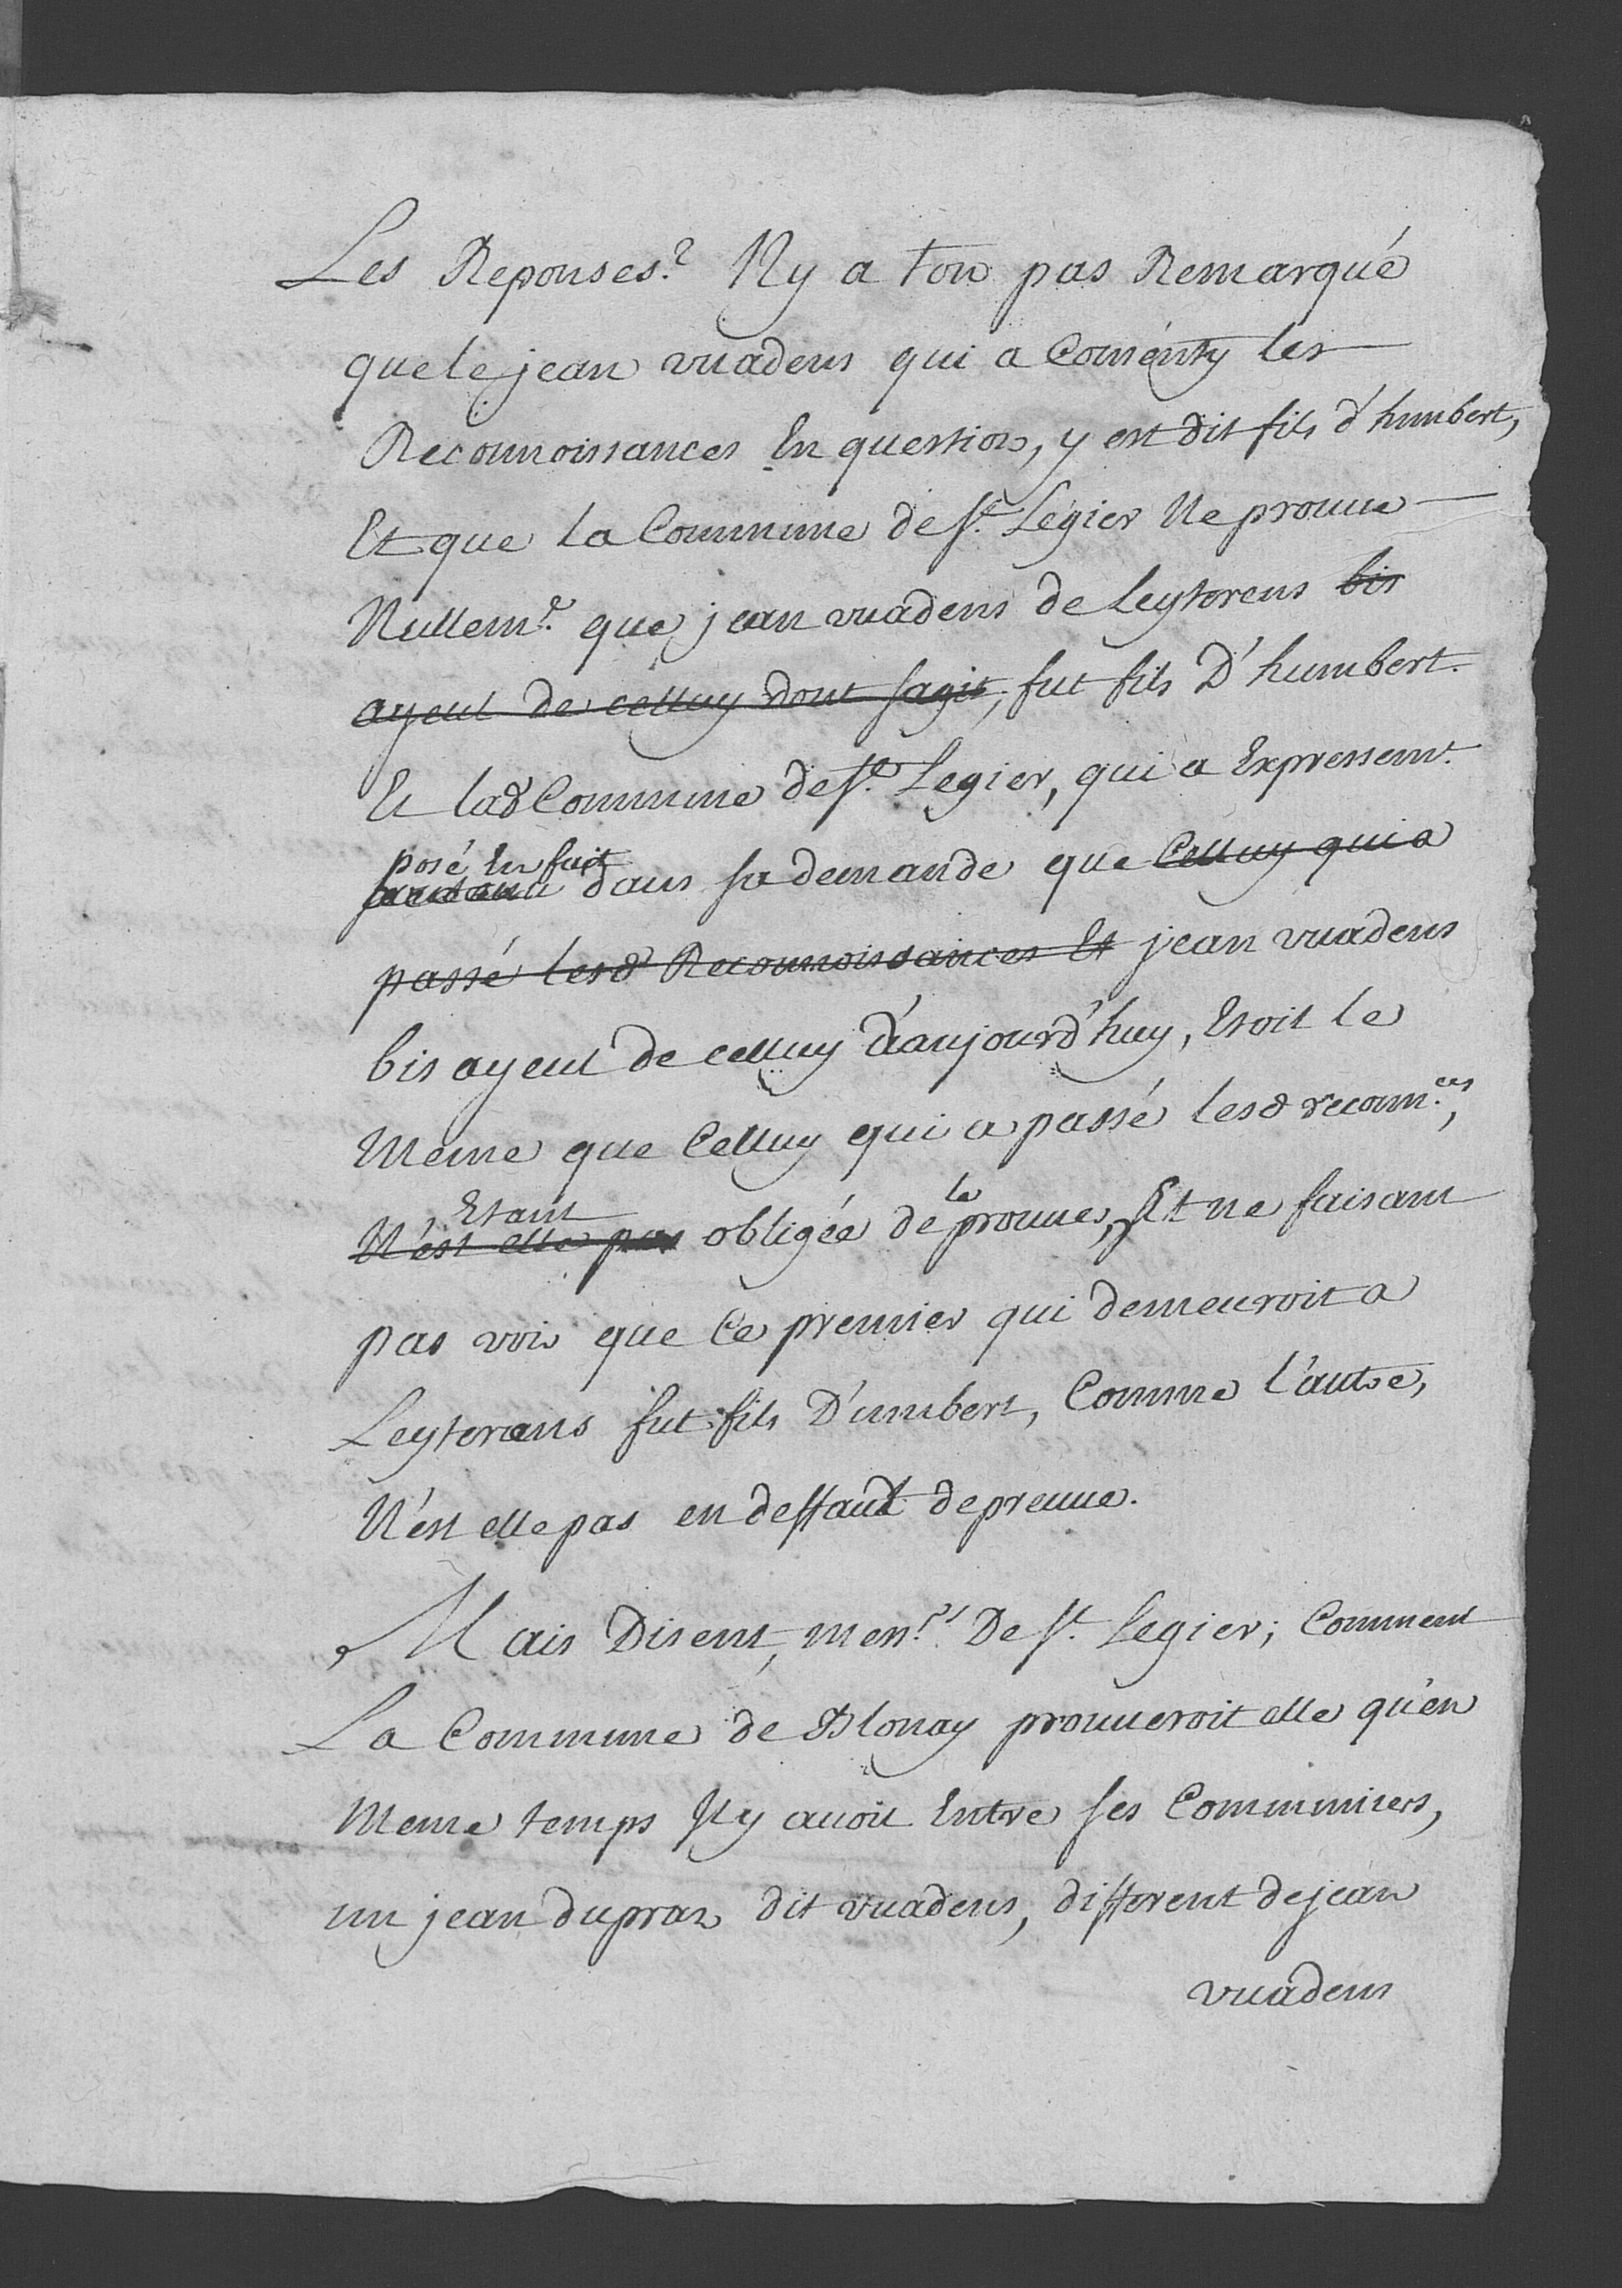 Les Reponses? N'y a ton pas Remarqué
que le jean vuadens qui a Consenty les
Reconnoissances En question, y est dit fils d'humbert,
Et que la Commune de St. Legier Ne prouue
Nullemt. que jean vuadens de Leytorens bis
ayeul de celluy dont sagit, fut fils D'humbert.
Et lad Commune de St. Legier, qui a Expressemt.
posé En fait
dans sa demande que Celluy qui a
passé lesd Reconnoissances Et jean vuadens
bis ayeul de celluy d'aujourd'huy, Etoit le
Meme que Celluy qui a passé lesd reconn.ces,
Etant le
N'est elle pas obligée de prouuer, Et ne faisant
pas voir que Ce premier qui demeuroit a
Leytorens fut fils D'umbert, Comme l'autre,
N'est elle pas en deffault de preuue.
Mais Disent, mess.rs De St. Legier; Comment
La Commune de Blonay prouueroit elle qu'en
Meme temps Il y auoit Entre ses Communiers,
un jean dupraz dit vuadens, different de jean
vuadens